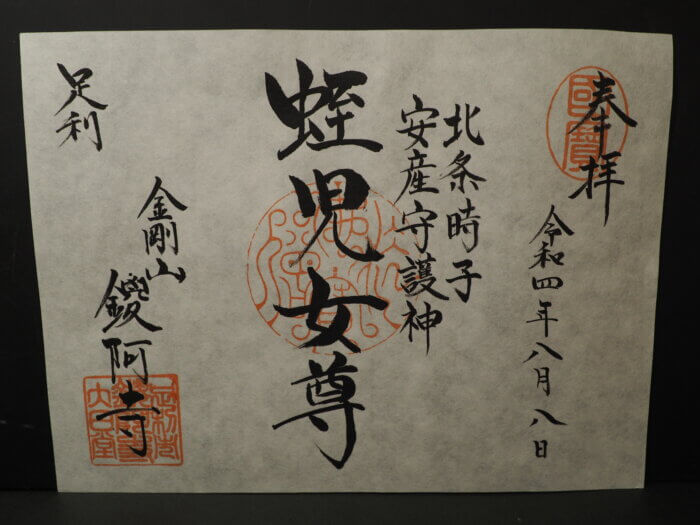 奉拝
國寶
令和四年八月八日
北条時子
安産守護神
蛭児女尊
足利
金剛山
鑁阿寺